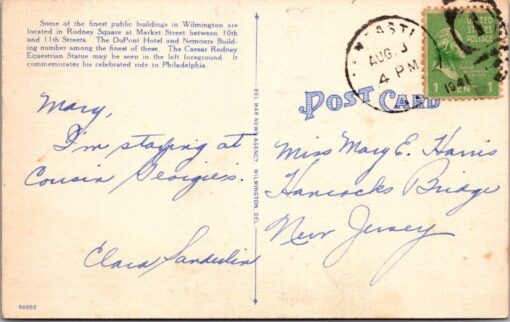 Some of the finest public buildings in Wilmington are
located in Rodney Square at Market Street between 10th
and 11th Streets. The DuPont Hotel and Nemours Build-
ing number among the finest of these. The Caesar Rodney
Equestrian Statue may be seen in the left foreground. It
commemorates his celebrated ride to Philadelphia.
AUG
4 PM
UNITED
STATES
POSTAGE
1 CENT 1
POST CARD
Mary,
I'm staying at
Cousin Georgie's.
Clara Sanderlin
DEL MAR NEWS AGENCY, WILMINGTON, DEL.
Miss Mary E. Harris
Hancocks Bridge
New Jersey
66693